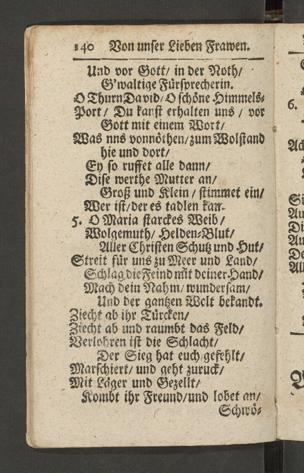 140 Von unser Lieben Frawen.
Und vor Gott/ in der Noth/
G'waltige Fürsprecherin.
O Thurn David/ O schöne Himmels-
Port/ Du kanst erhalten uns / vor
Gott mit einem Wort/
Was uns vonnöthen/ zum Wolstand
hie und dort/
Ey so ruffet alle dann/
Dise werthe Mutter an/
Groß und Klein/ stimmet ein/
Wer ist/ der es tadlen kan.
5. O Maria starckes Weib/
Wolgemuth/ Helden-Blut/
Aller Christen Schutz und Hut/
Streit für uns zu Meer und Land/
Schlag die Feind mit deiner Hand/
Mach dein Nahm/ wundersam/
Und der gantzen Welt bekandt.
Ziecht ab ihr Türcken/
Ziecht ab und raumbt das Feld/
Verlohren ist die Schlacht/
Der Sieg hat euch gefehlt/
Marschiert/ und geht zuruck/
Mit Läger und Gezellt/
Kombt ihr Freund/ und lobet an/
Schwö-